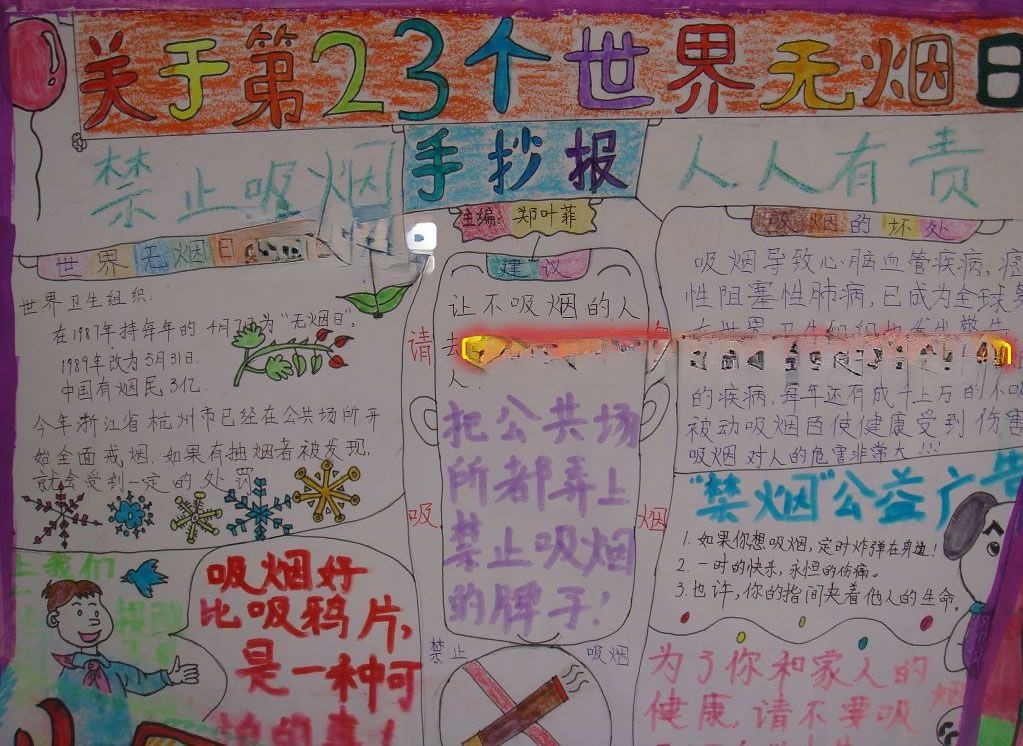 关于第23个世界无烟日
手抄报
禁止吸烟
人人有责
主编：郑叶菲
世界无烟日
世界卫生组织：
在1987年持每年的4月7日为“无烟日”，
1989年改为5月31日.
中国有烟民3亿.
今年浙江省杭州市已经在公共场所开
始全面戒烟.如果有抽烟者被发现，
就会受到一定的处罚
吸烟好
比吸鸦片，
是一种可
建议
让不吸烟的人
去
人.
把公共场
所都弄上
禁止吸烟
的牌子！
请
吸
烟
禁止
吸烟
烟的坏处
吸烟导致心脑血管疾病，癌
性阻塞性肺病，已成为全球
的疾病，每年还有成千上万的不吸
被动吸烟而使健康受到伤害
吸烟对人的危害非常大!!!
“禁烟”公益广告
1.如果你想吸烟，定时炸弹在身边！
2.一时的快乐，永恒的伤痛。
3.也许，你的指间夹着他人的生命.
为了你和家人的
健康，请不要吸
烟